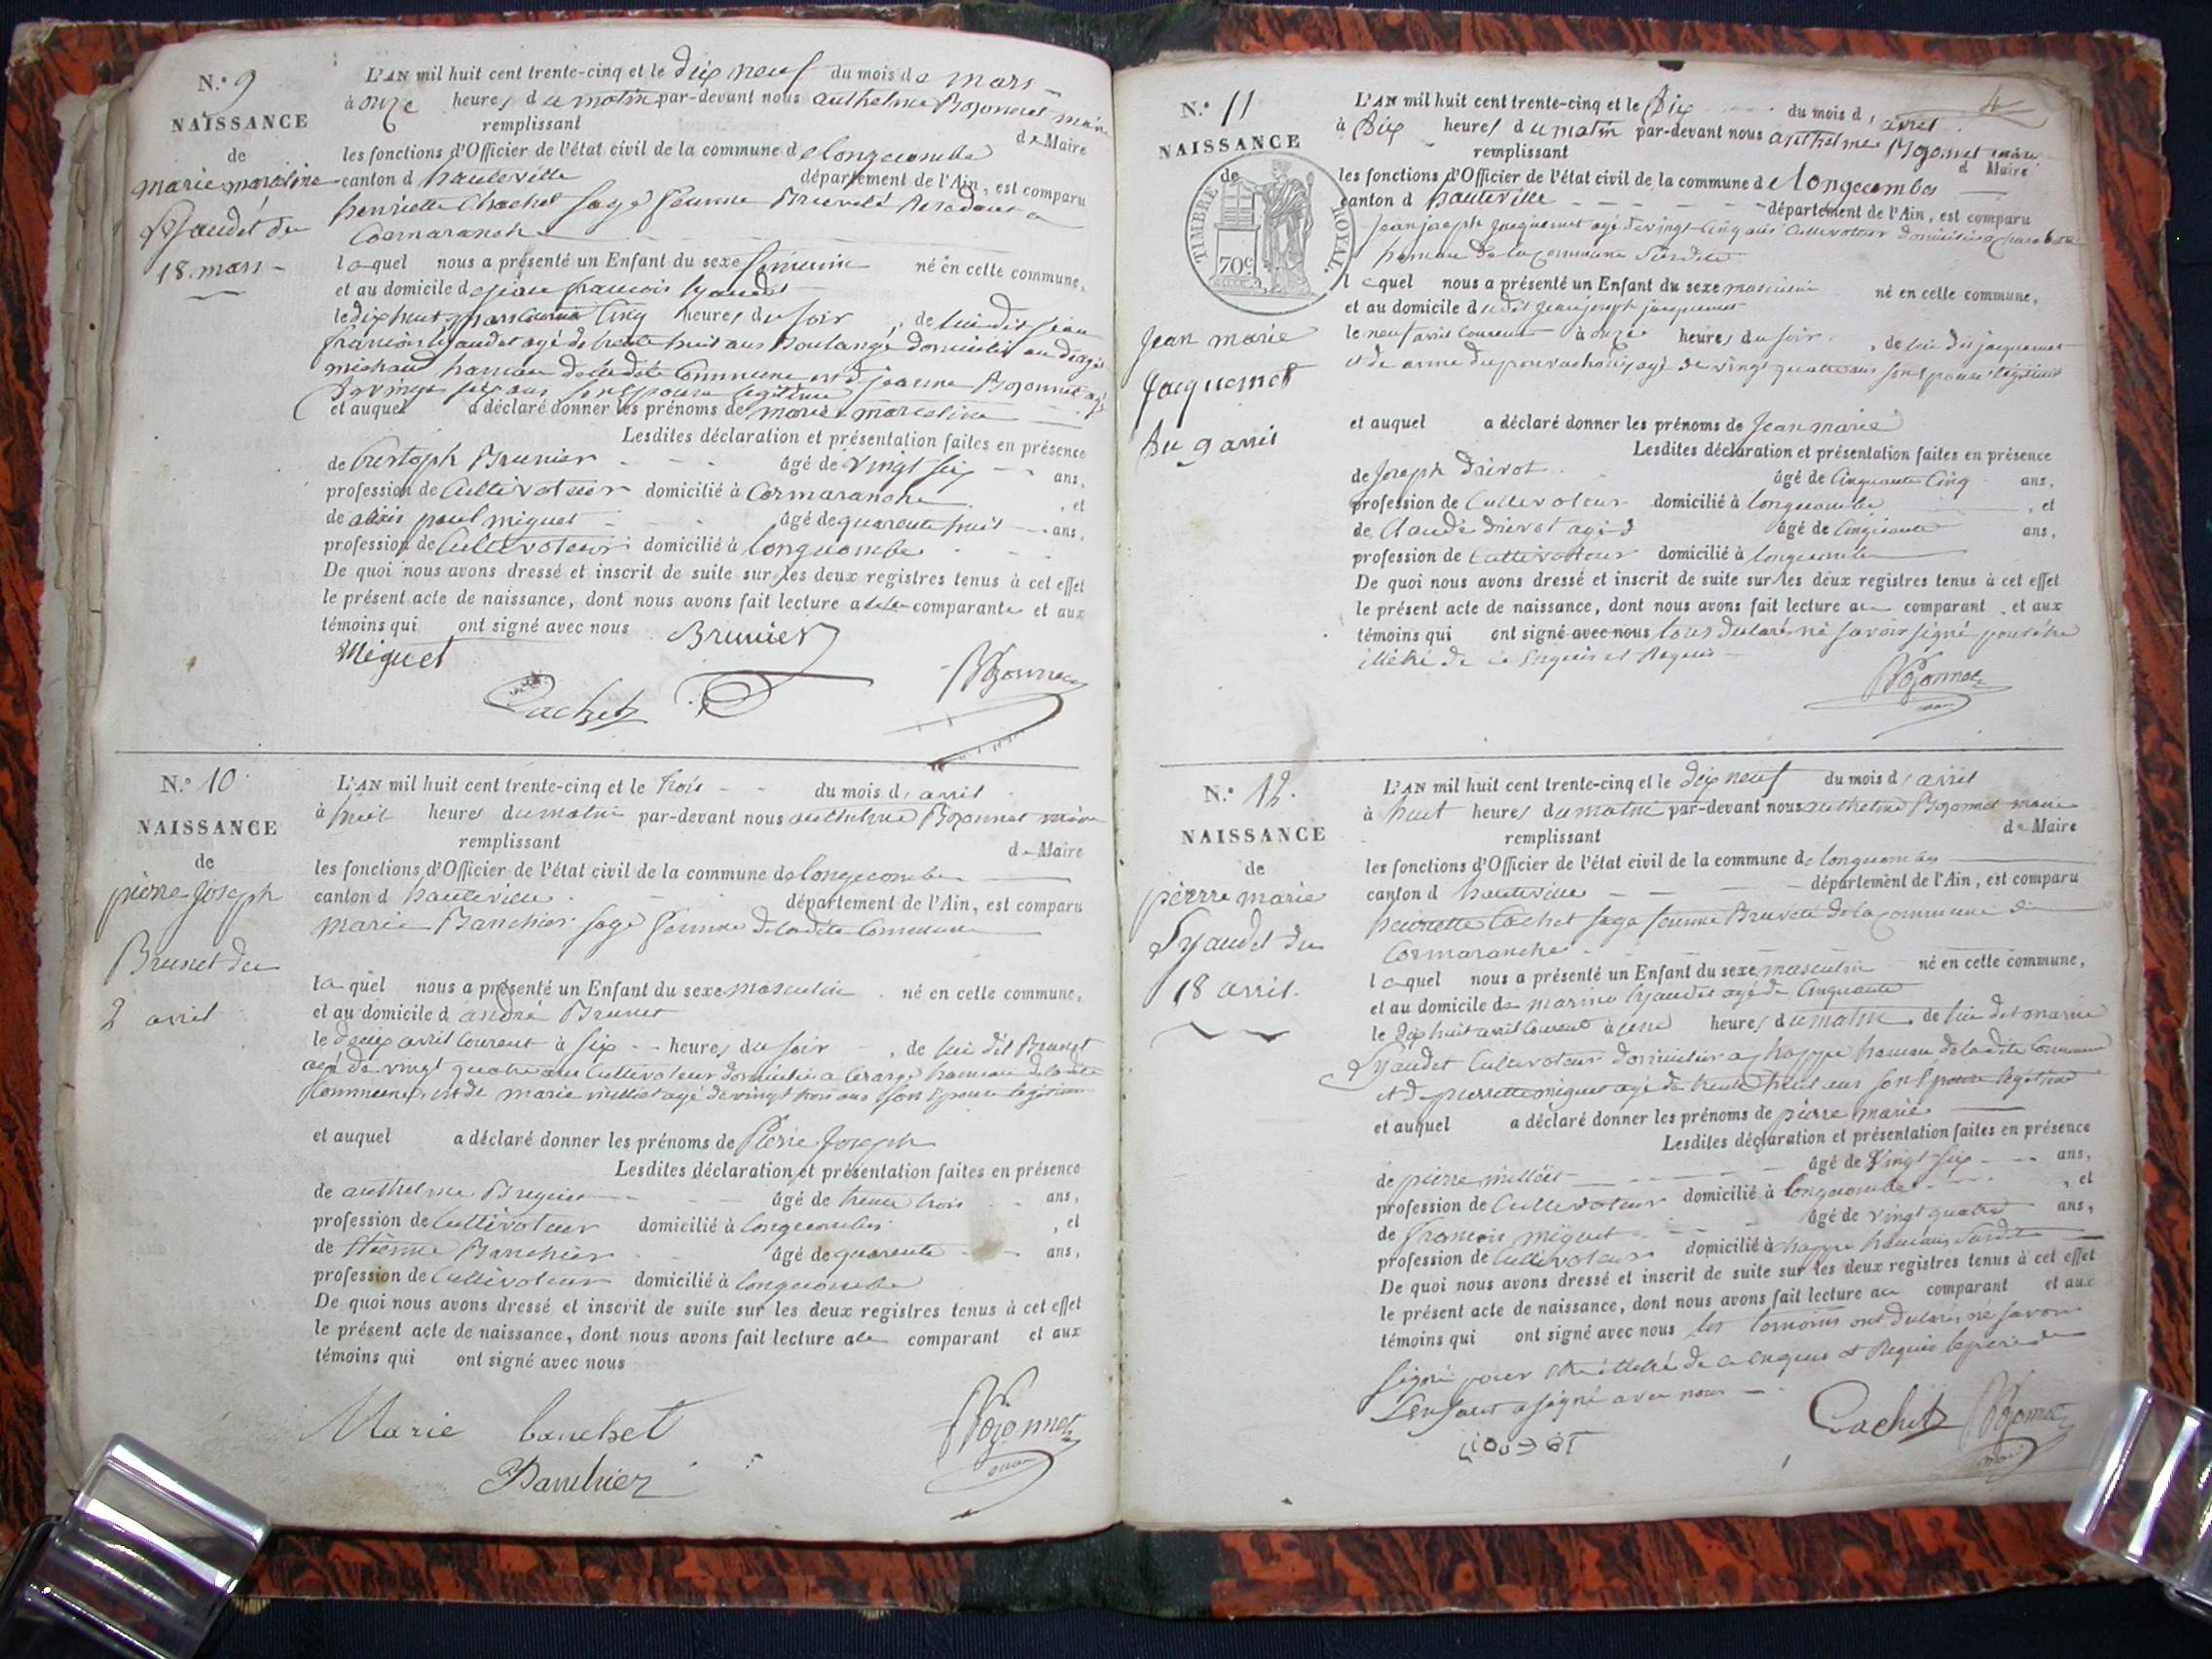 N.° 9
NAISSANCE
de
marie marceline
Lyaudet du
18 mars
L'AN mil huit cent trente-cinq et le dix neuf du mois de mars
à onze heures du matin par-devant nous anthelme Bozonnet maire
remplissant de Maire
les fonctions d'Officier de l'état civil de la commune de longecombe
canton d hauteville département de l'Ain, est comparu
henriette Chachet sage femme Brevetée
Cormaranche
laquel nous a présenté un Enfant du sexe féminin né en cette commune,
et au domicile de jean francois lyaudet
le dix huit mars courant à cinq heures du soir, de lui dit jean
francois lyaudet agé de trente huit ans domicilié au
michaud hameau de ladite Commune et de jeanne Bozonnet agé
de vingt six ans son Epouse légitime
et auquel a déclaré donner les prénoms de marie marceline
Lesdites déclaration et présentation faites en présence
de Cristoph Brunier âgé de vingt six ans,
profession de Cultivateur domicilié à Cormaranche, et
de alexis paul miguet âgé de quarente huit ans,
profession de Cultivateur domicilié à longecombe
De quoi nous avons dressé et inscrit de suite sur les deux registres tenus à cet effet
le présent acte de naissance, dont nous avons fait lecture a la comparante et aux
témoins qui ont signé avec nous Brunier
Miguet
Cachet Bozonnet
N.° 10
NAISSANCE
de
pierre Joseph
Brunet du
2 avril
L'AN mil huit cent trente-cinq et le trois du mois d avril
à huit heures du matin par-devant nous anthelme Bozonnet maire
remplissant de Maire
les fonctions d'Officier de l'état civil de la commune de longecombe
canton d hauteville département de l'Ain, est comparu
marie Banchier sage femme de ladite Commune
laquel nous a présenté un Enfant du sexe masculin né en cette commune,
et au domicile d andré Brunet
le deux avril courent à six heures du soir, de lui dit Brunet
agé de vingt quatre ans Cultivateur domicilié a hameau de ladite
Commune, et de marie milliet agé de vingt trois ans son Epouse légitime
et auquel a déclaré donner les prénoms de Pierre Joseph
Lesdites déclaration et présentation faites en présence
de anthelme âgé de trente trois ans,
profession de Cultivateur domicilié à longecombe, et
de Etienne Banchier âgé de quarente ans,
profession de Cultivateur domicilié à longecombe
De quoi nous avons dressé et inscrit de suite sur les deux registres tenus à cet effet
le présent acte de naissance, dont nous avons fait lecture a la comparant et aux
témoins qui ont signé avec nous
Marie banchet Bozonnet
Banchier maire
N.° 11
NAISSANCE
de
TIMBRE ROYAL.
70c
Jean marie
Jacquemet
du 9 avril
L'AN mil huit cent trente-cinq et le dix du mois d avril
à dix heures du matin par-devant nous anthelme Bozonnet maire
remplissant d Maire
les fonctions d'Officier de l'état civil de la commune de longecombe
canton d hauteville département de l'Ain, est comparu
jean joseph jacquemet agé de vingt Cinq ans Cultivateur domicilié a
hameau de la commune susdite
lequel nous a présenté un Enfant du sexe masculin né en cette commune,
et au domicile du dit jean joseph jacquemet
le neuf avril Courent à onze heures du soir, de lui dit jacquemet
et de agé de vingt quatre ans son Epouse légitime
et auquel a déclaré donner les prénoms de Jean marie
Lesdites déclaration et présentation faites en présence
de Joseph Drivot âgé de Cinquante Cinq ans,
profession de Cultivateur domicilié à longecombe, et
de Claude Drivot agé d âgé de Cinquante ans,
profession de Cultivateur domicilié à longecombe
De quoi nous avons dressé et inscrit de suite sur les deux registres tenus à cet effet
le présent acte de naissance, dont nous avons fait lecture au comparant et aux
témoins qui ont signé avec nous tous déclaré ne savoir signé pour être
illétré de ce Enquis et Requis
Bozonnet
maire
N.° 12.
NAISSANCE
de
pierre marie
Lyaudet du
18 avril.
L'AN mil huit cent trente-cinq et le dix neuf du mois d avril
à huit heures du matin par-devant nous anthelme Bozonnet maire
remplissant de Maire
les fonctions d'Officier de l'état civil de la commune de longecombe
canton d hauteville département de l'Ain, est comparu
henriette Cachet sage femme Breveté de la commune de
Cormaranche
laquel nous a présenté un Enfant du sexe masculin né en cette commune,
et au domicile de marin lyaudet agé de Cinquante
le dix huit avril courent à une heures du matin, de lui dit marin
Lyaudet Cultivateur domicilié a hameau de ladite Commune
et de pierrette miguet agé de trente huit ans son Epouse légitime
et auquel a déclaré donner les prénoms de pierre marie
Lesdites déclaration et présentation faites en présence
de pierre milliet âgé de vingt six ans,
profession de Cultivateur domicilié à longecombe, et
de francois miguet âgé de vingt quatre ans,
profession de Cultivateur domicilié à hameau susdit
De quoi nous avons dressé et inscrit de suite sur les deux registres tenus à cet effet
le présent acte de naissance, dont nous avons fait lecture au comparant et aux
témoins qui ont signé avec nous les témoins ont déclaré ne savoir
signé pour être illétré de ce enquis et Requis le père de
L'enfant a signé avec nous
Cachet Bozonnet
maire